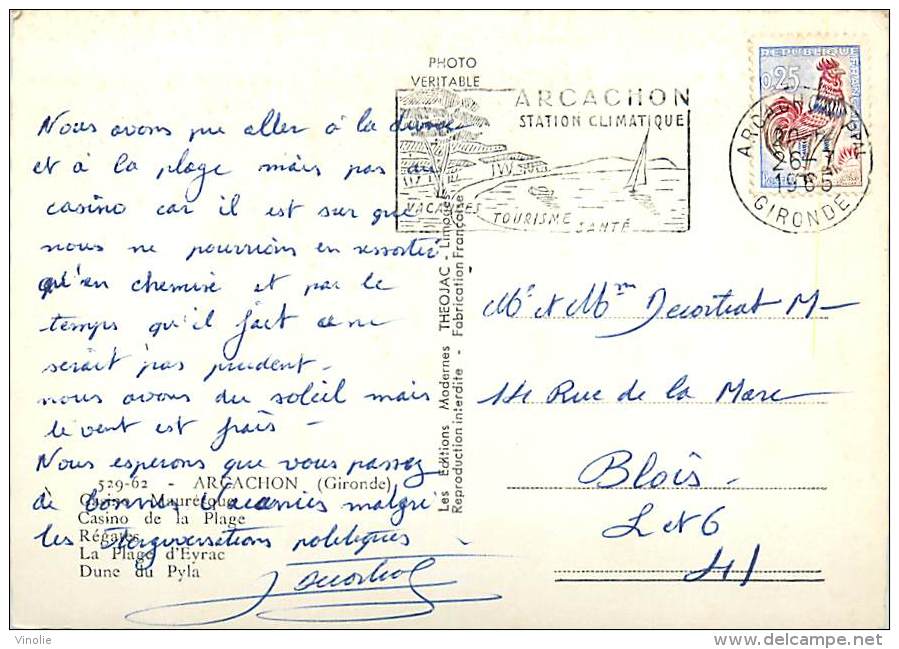 PHOTO
VERITABLE
ARCACHON
STATION CLIMATIQUE
VACANCES
TOURISME
SANTÉ
REPUBLIQUE FRANÇAISE
0,25
ARCACHON
26-7
1965
GIRONDE
Nous avons pu aller à la dune
et à la plage mais pas au
casino car il est sur que
nous ne pourrions en ressortir
qu'en chemise et par le
temps qu'il fait ce ne
serait pas prudent -
nous avons du soleil mais
le vent est frais -
Nous esperons que vous passez
de bonnes Vacances malgré
les politiques
529-62 - ARCACHON (Gironde)
Casino Mauresque
Casino de la Plage
Régates
La Plage d'Eyrac
Dune du Pyla
Les Editions Modernes THEOJAC - Limoges
Reproduction interdite - Fabrication Française
Mr et Mme Decortiat M-
14 Rue de la Mare
Blois
L et C
41
Vinolie
delcampe.net